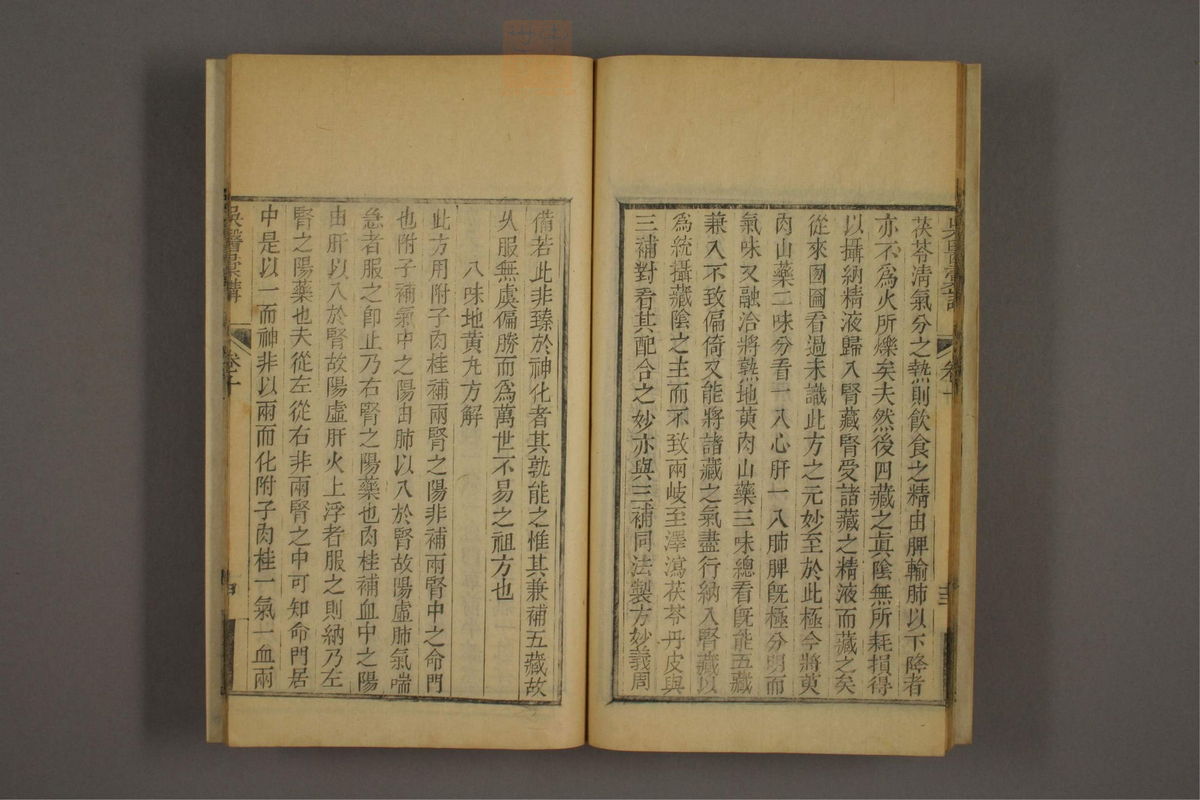 茯苓清氣分之熱則飲食之精由脾輸肺以下降者
亦不為火所爍矣夫然後四藏之眞陰無所耗損得
以攝納精液歸入腎藏腎受諸藏之精液而藏之矣
從來囫圇看過未識此方之元妙至於此極今將萸
肉山藥二味分看一入心肝一入肺脾旣極分明而
氣味又融洽將熟地萸肉山藥三味總看旣能五藏
兼入不致偏倚又能將諸藏之氣盡行納入腎藏以
為統攝藏陰之主而不致兩岐至澤瀉茯苓丹皮與
三補對看其配合之妙亦與三補同法製方妙義周
備若此非臻於神化者其孰能之惟其兼補五藏故
久服無虞偏勝而為萬世不易之祖方也
八味地黄丸方解
此方用附子肉桂補兩腎之陽非補兩腎中之命門
也附子補氣中之陽由肺以入於腎故陽虛肺氣喘
急者服之卽止乃右腎之陽藥也肉桂補血中之陽
由肝以入於腎故陽虛肝火上浮者服之則納乃左
腎之陽藥也夫從左從右非兩腎之中可知命門居
中是以一而神非以兩而化附子肉桂一氣一血兩
吳醫彙講
卷十